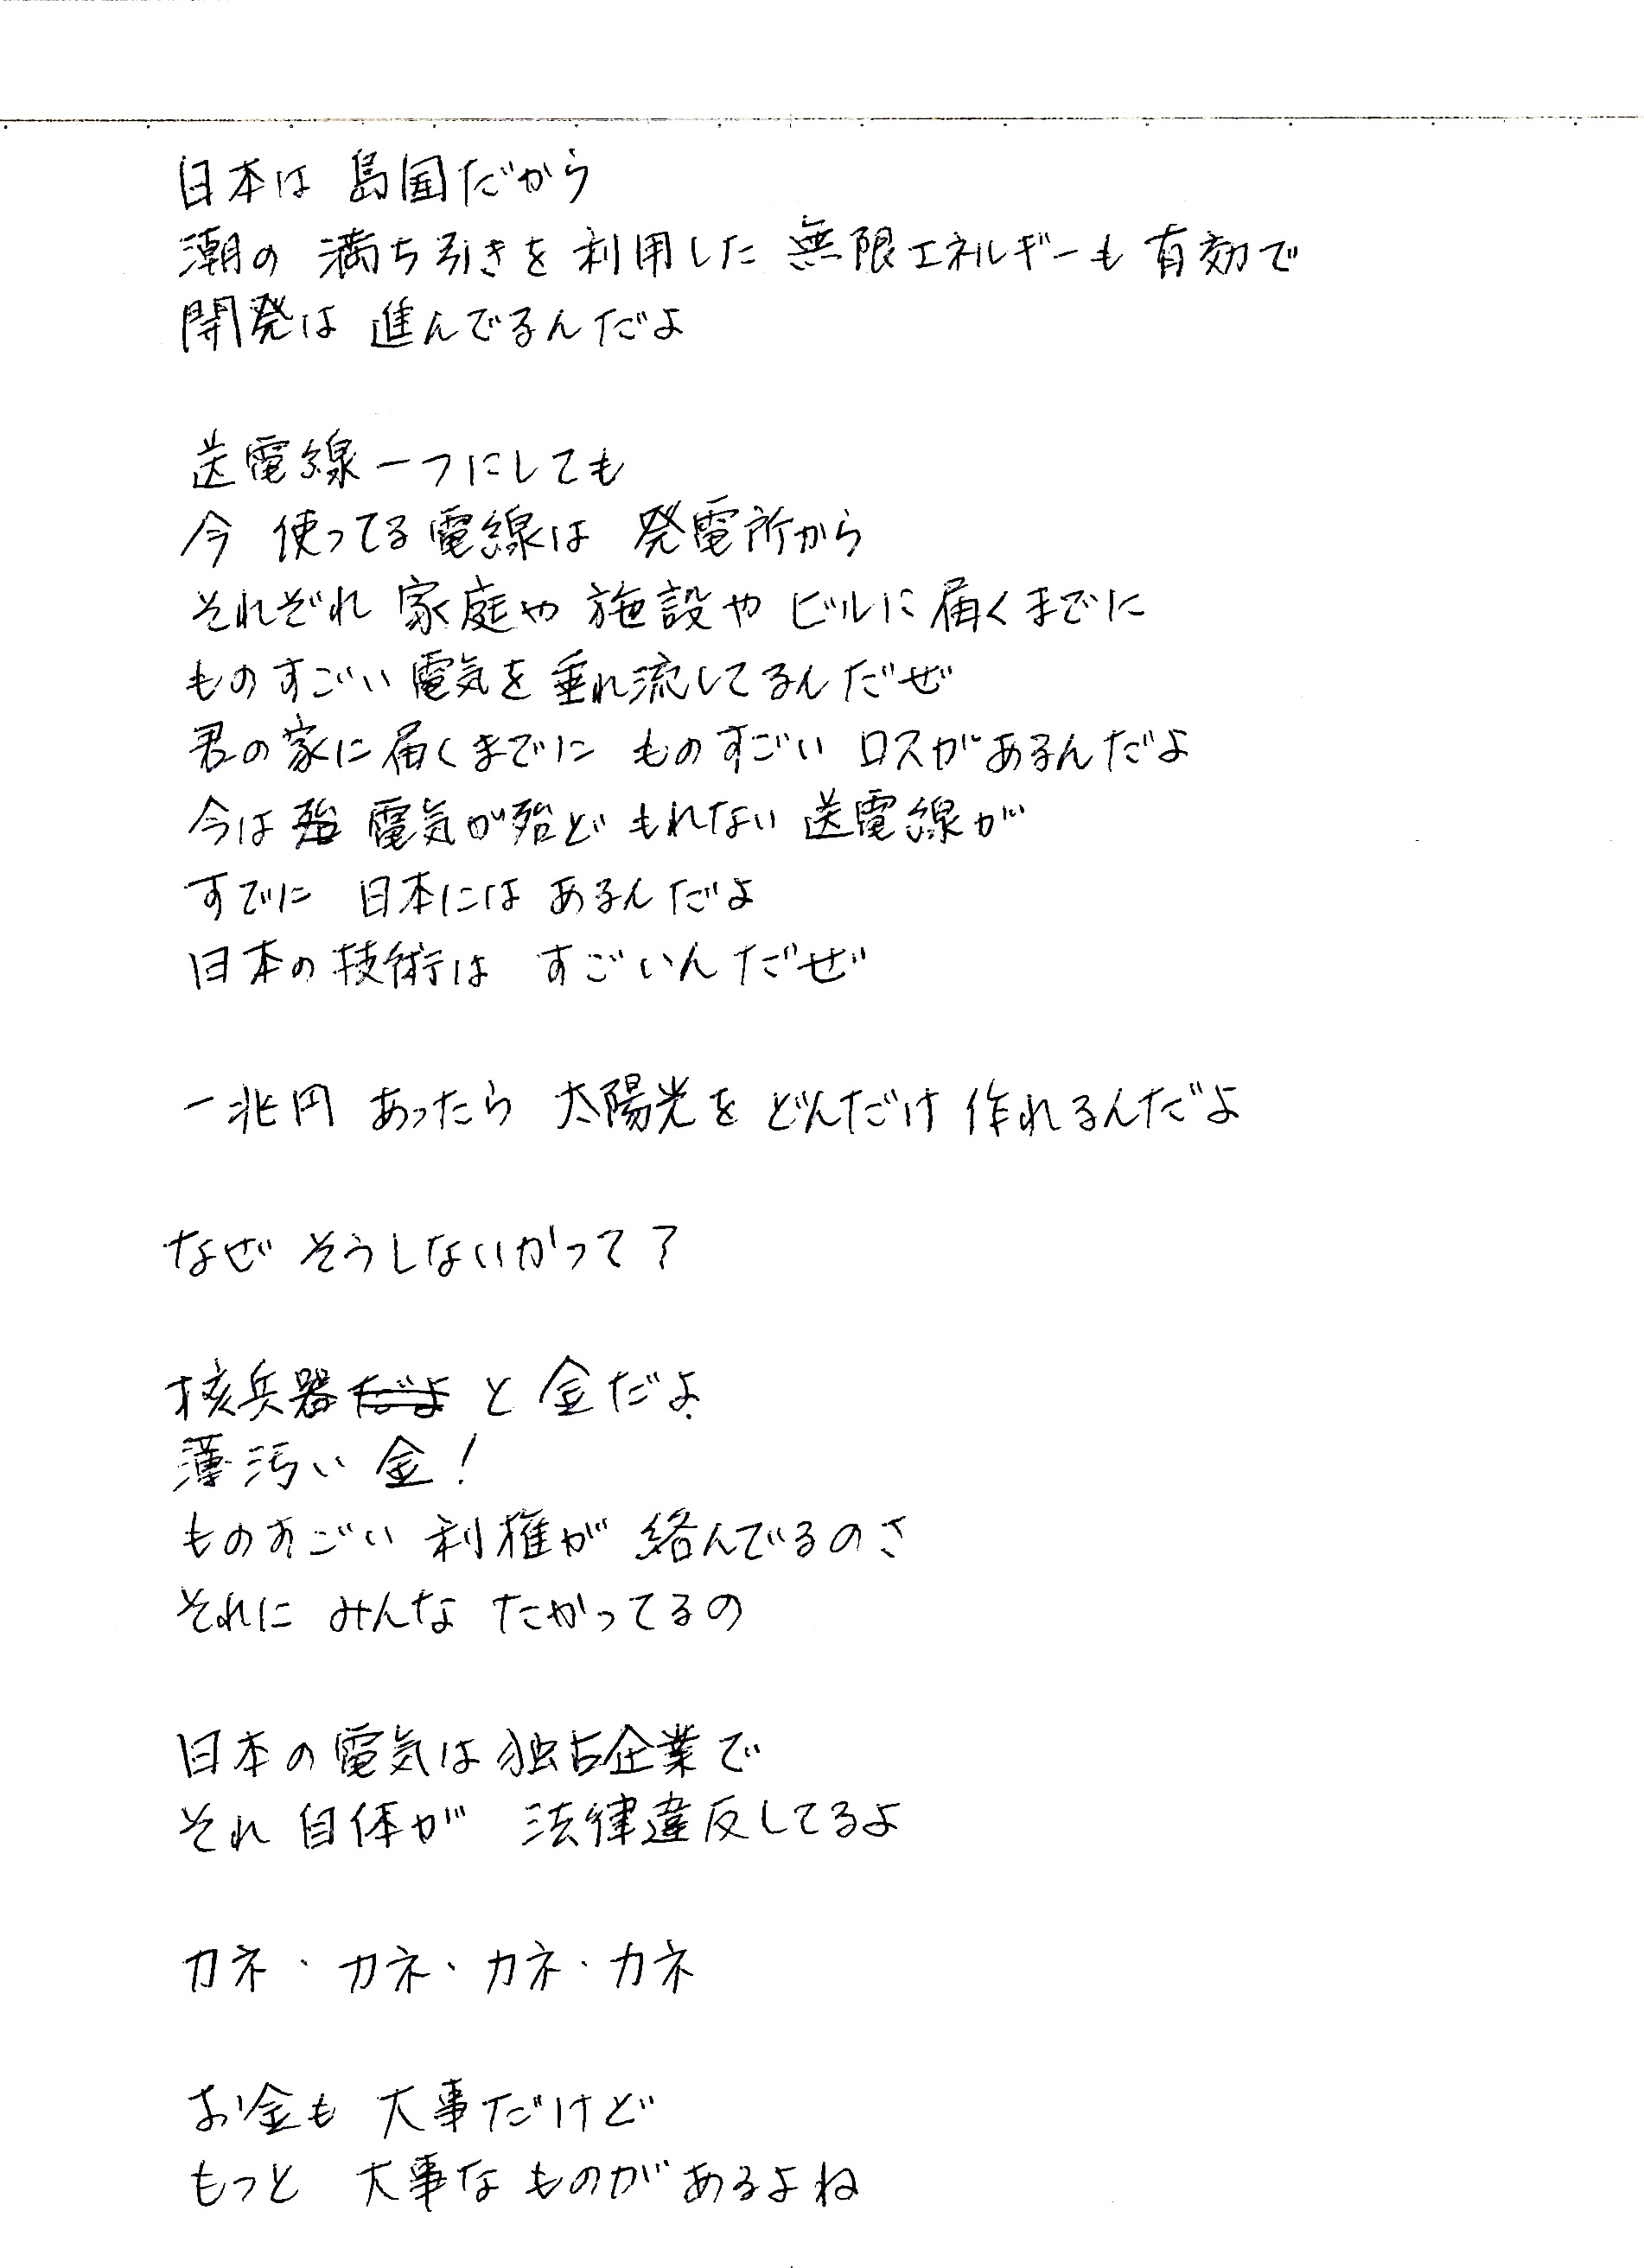 日本は 島国だから
潮の 満ち引きを 利用した 無限エネルギーも 有効で
開発は 進んでるんだよ
送電線一つにしても
今 使ってる電線は 発電所から
それぞれ 家庭や 施設や ビルに 届くまでに
ものすごい 電気を 垂れ流してるんだぜ
君の家に届くまでに ものすごい ロスがあるんだよ
今は 電気が殆ど もれない 送電線が
すでに 日本には あるんだよ
日本の技術は すごいんだぜ
一兆円 あったら 太陽光を どんだけ 作れるんだよ
なぜ そうしないかって?
核兵器だよ と 金だよ
薄汚い 金!
ものすごい 利権が 絡んでるのさ
それに みんな たかってるの
日本の電気は独占企業で
それ自体が 法律違反してるよ
カネ・カネ・カネ・カネ
お金も 大事だけど
もっと 大事な ものが あるよね